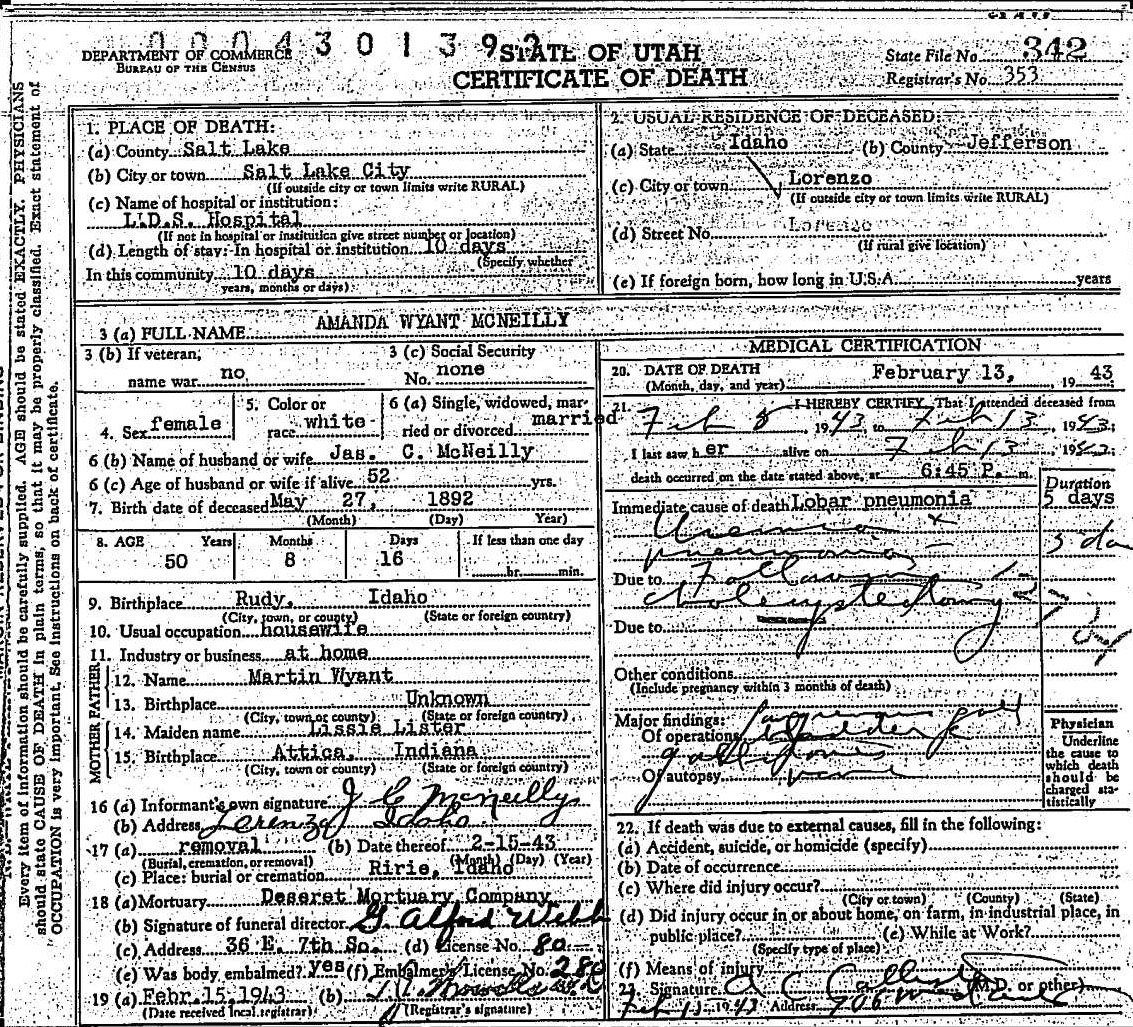 0 0 0 4 3 0 1 3 9
DEPARTMENT OF COMMERCE
BUREAU OF THE CENSUS
STATE OF UTAH
CERTIFICATE OF DEATH
State File No. 342
Registrar's No. 353
Every item of information should be carefully supplied. AGE should be stated EXACTLY. PHYSICIANS
should state CAUSE OF DEATH in plain terms, so that it may be properly classified. Exact statement of
OCCUPATION is very important. See instructions on back of certificate.
1. PLACE OF DEATH:
(a) County Salt Lake
(b) City or town Salt Lake City
(If outside city or town limits write RURAL)
(c) Name of hospital or institution:
L.D.S. Hospital
(If not in hospital or institution give street number or location)
(d) Length of stay: In hospital or institution 10 days
(Specify whether
In this community 10 days
years, months or days)
2. USUAL RESIDENCE OF DECEASED:
(a) State Idaho (b) County Jefferson
(c) City or town Lorenzo
(If outside city or town limits write RURAL)
(d) Street No. Lorenzo
(If rural give location)
(e) If foreign born, how long in U.S.A. years
3 (a) FULL NAME AMANDA WYANT MCNEILLY
3 (b) If veteran, name war no
3 (c) Social Security No. none
4. Sex female
5. Color or race white
6 (a) Single, widowed, married or divorced married
6 (b) Name of husband or wife Jas. C. McNeilly
6 (c) Age of husband or wife if alive 52 yrs.
7. Birth date of deceased May 27, 1892
(Month) (Day) Year)
8. AGE Years Months Days If less than one day
50 8 16 hr. min.
9. Birthplace Rudy, Idaho
(City, town, or county) (State or foreign country)
10. Usual occupation housewife
11. Industry or business at home
FATHER
12. Name Martin Wyant
13. Birthplace Unknown
(City, town or county) (State or foreign country)
MOTHER
14. Maiden name Lissie Lister
15. Birthplace Attica, Indiana
(City, town or county) (State or foreign country)
16 (a) Informant's own signature J C McNeilly
(b) Address Lorenzo Idaho
17 (a) removal (b) Date thereof 2-15-43
(Burial, cremation, or removal) (Month) (Day) (Year)
(c) Place: burial or cremation Ririe, Idaho
18 (a) Mortuary Deseret Mortuary Company
(b) Signature of funeral director G. Alford Webb
(c) Address 36 E. 7th So. (d) License No. 80
(e) Was body embalmed? yes (f) Embalmer's License No. 280
19 (a) Febr. 15, 1943 (b)
(Date received local registrar) (Registrar's signature)
MEDICAL CERTIFICATION
20. DATE OF DEATH February 13, 1943
(Month, day, and year)
21. I HEREBY CERTIFY, That I attended deceased from
Feb 8 1943 to Feb 13, 1943;
I last saw her alive on Feb 13, 1943;
death occurred on the date stated above, at 6:45 P. m.
Duration
Immediate cause of death Lobar pneumonia 5 days
Uremia + 3 da
pneumonia
Due to Following
cholecystectomy
Due to
Other conditions
(Include pregnancy within 3 months of death)
Major findings:
Of operations gall
bladder
gallstones
Of autopsy none
Physician
Underline
the cause to
which death
should be
charged sta-
tistically
22. If death was due to external causes, fill in the following:
(a) Accident, suicide, or homicide (specify)
(b) Date of occurrence
(c) Where did injury occur?
(City or town) (County) (State)
(d) Did injury occur in or about home, on farm, in industrial place, in
public place? (e) While at Work?
(Specify type of place)
(f) Means of injury
23. Signature A C (M.D. or other)
Feb 15 1943 Address